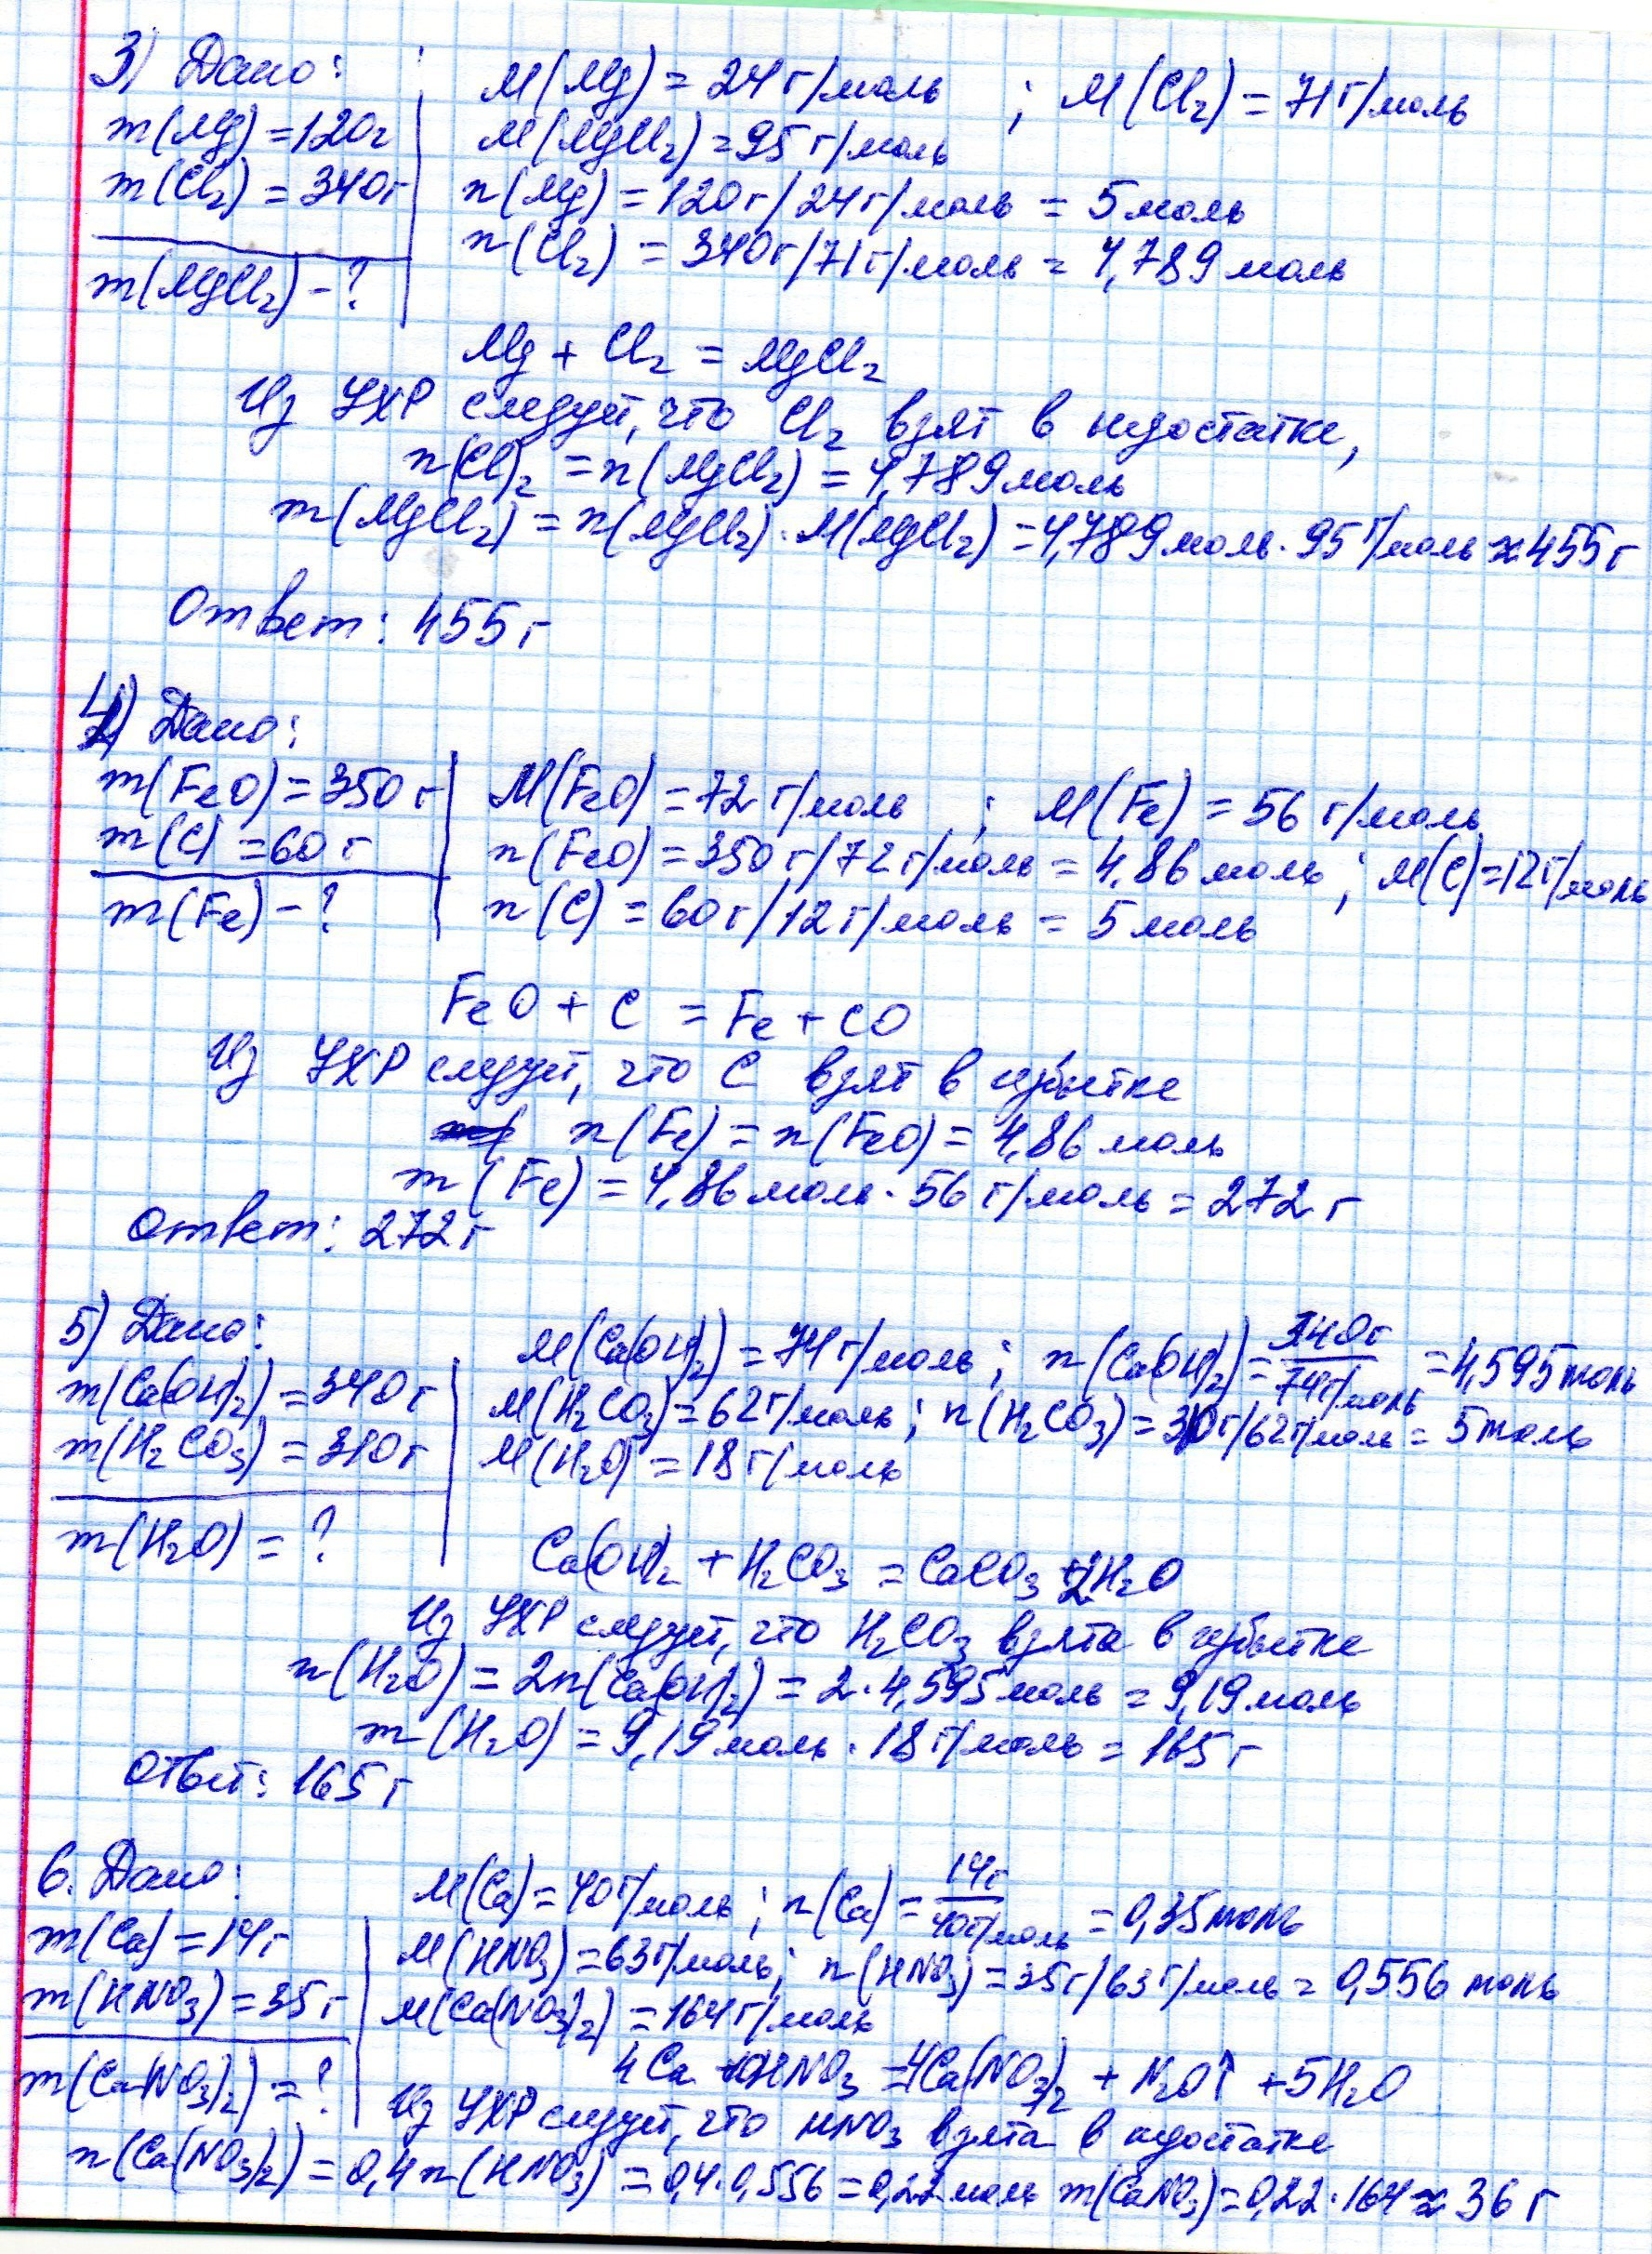 3) Дано:
m(Mg) = 120г
m(Cl₂) = 340г
m(MgCl₂) - ?
M(Mg) = 24 г/моль ; M(Cl₂) = 71 г/моль
M(MgCl₂) = 95 г/моль
n(Mg) = 120г/24г/моль = 5 моль
n(Cl₂) = 340г/71г/моль = 4,789 моль
Mg + Cl₂ = MgCl₂
Из УХР следует, что Cl₂ взят в недостатке,
n(Cl)₂ = n(MgCl₂) = 4,789 моль
m(MgCl₂) = n(MgCl₂) · M(MgCl₂) = 4,789 моль · 95 г/моль ≈ 455 г
Ответ: 455 г
4) Дано:
m(FeO) = 350 г
m(C) = 60 г
m(Fe) - ?
M(FeO) = 72 г/моль ; M(Fe) = 56 г/моль
n(FeO) = 350 г/72 г/моль = 4,86 моль ; M(C) = 12 г/моль
n(C) = 60 г/12 г/моль = 5 моль
FeO + C = Fe + CO
Из УХР следует, что C взят в избытке
n(Fe) = n(FeO) = 4,86 моль
m(Fe) = 4,86 моль · 56 г/моль = 272 г
Ответ: 272 г
5) Дано:
m(Ca(OH)₂) = 340 г
m(H₂CO₃) = 310 г
m(H₂O) = ?
M(Ca(OH)₂) = 74 г/моль ; n(Ca(OH)₂) = 340г/74г/моль = 4,595 моль
M(H₂CO₃) = 62 г/моль ; n(H₂CO₃) = 310г/62г/моль = 5 моль
M(H₂O) = 18 г/моль
Ca(OH)₂ + H₂CO₃ = CaCO₃ + 2H₂O
Из УХР следует, что H₂CO₃ взята в избытке
n(H₂O) = 2n(Ca(OH)₂) = 2 · 4,595 моль = 9,19 моль
m(H₂O) = 9,19 моль · 18 г/моль = 165 г
Ответ: 165 г
6. Дано:
m(Ca) = 14 г
m(HNO₃) = 35 г
m(Ca(NO₃)₂) = ?
M(Ca) = 40 г/моль ; n(Ca) = 14г/40г/моль = 0,35 моль
M(HNO₃) = 63 г/моль ; n(HNO₃) = 35 г/63 г/моль = 0,556 моль
M(Ca(NO₃)₂) = 164 г/моль
4Ca + 10HNO₃ = 4Ca(NO₃)₂ + N₂O↑ + 5H₂O
Из УХР следует, что HNO₃ взята в недостатке
n(Ca(NO₃)₂) = 0,4n(HNO₃) = 0,4·0,556 = 0,22 моль m(CaNO₃) = 0,22 · 164 ≈ 36 г